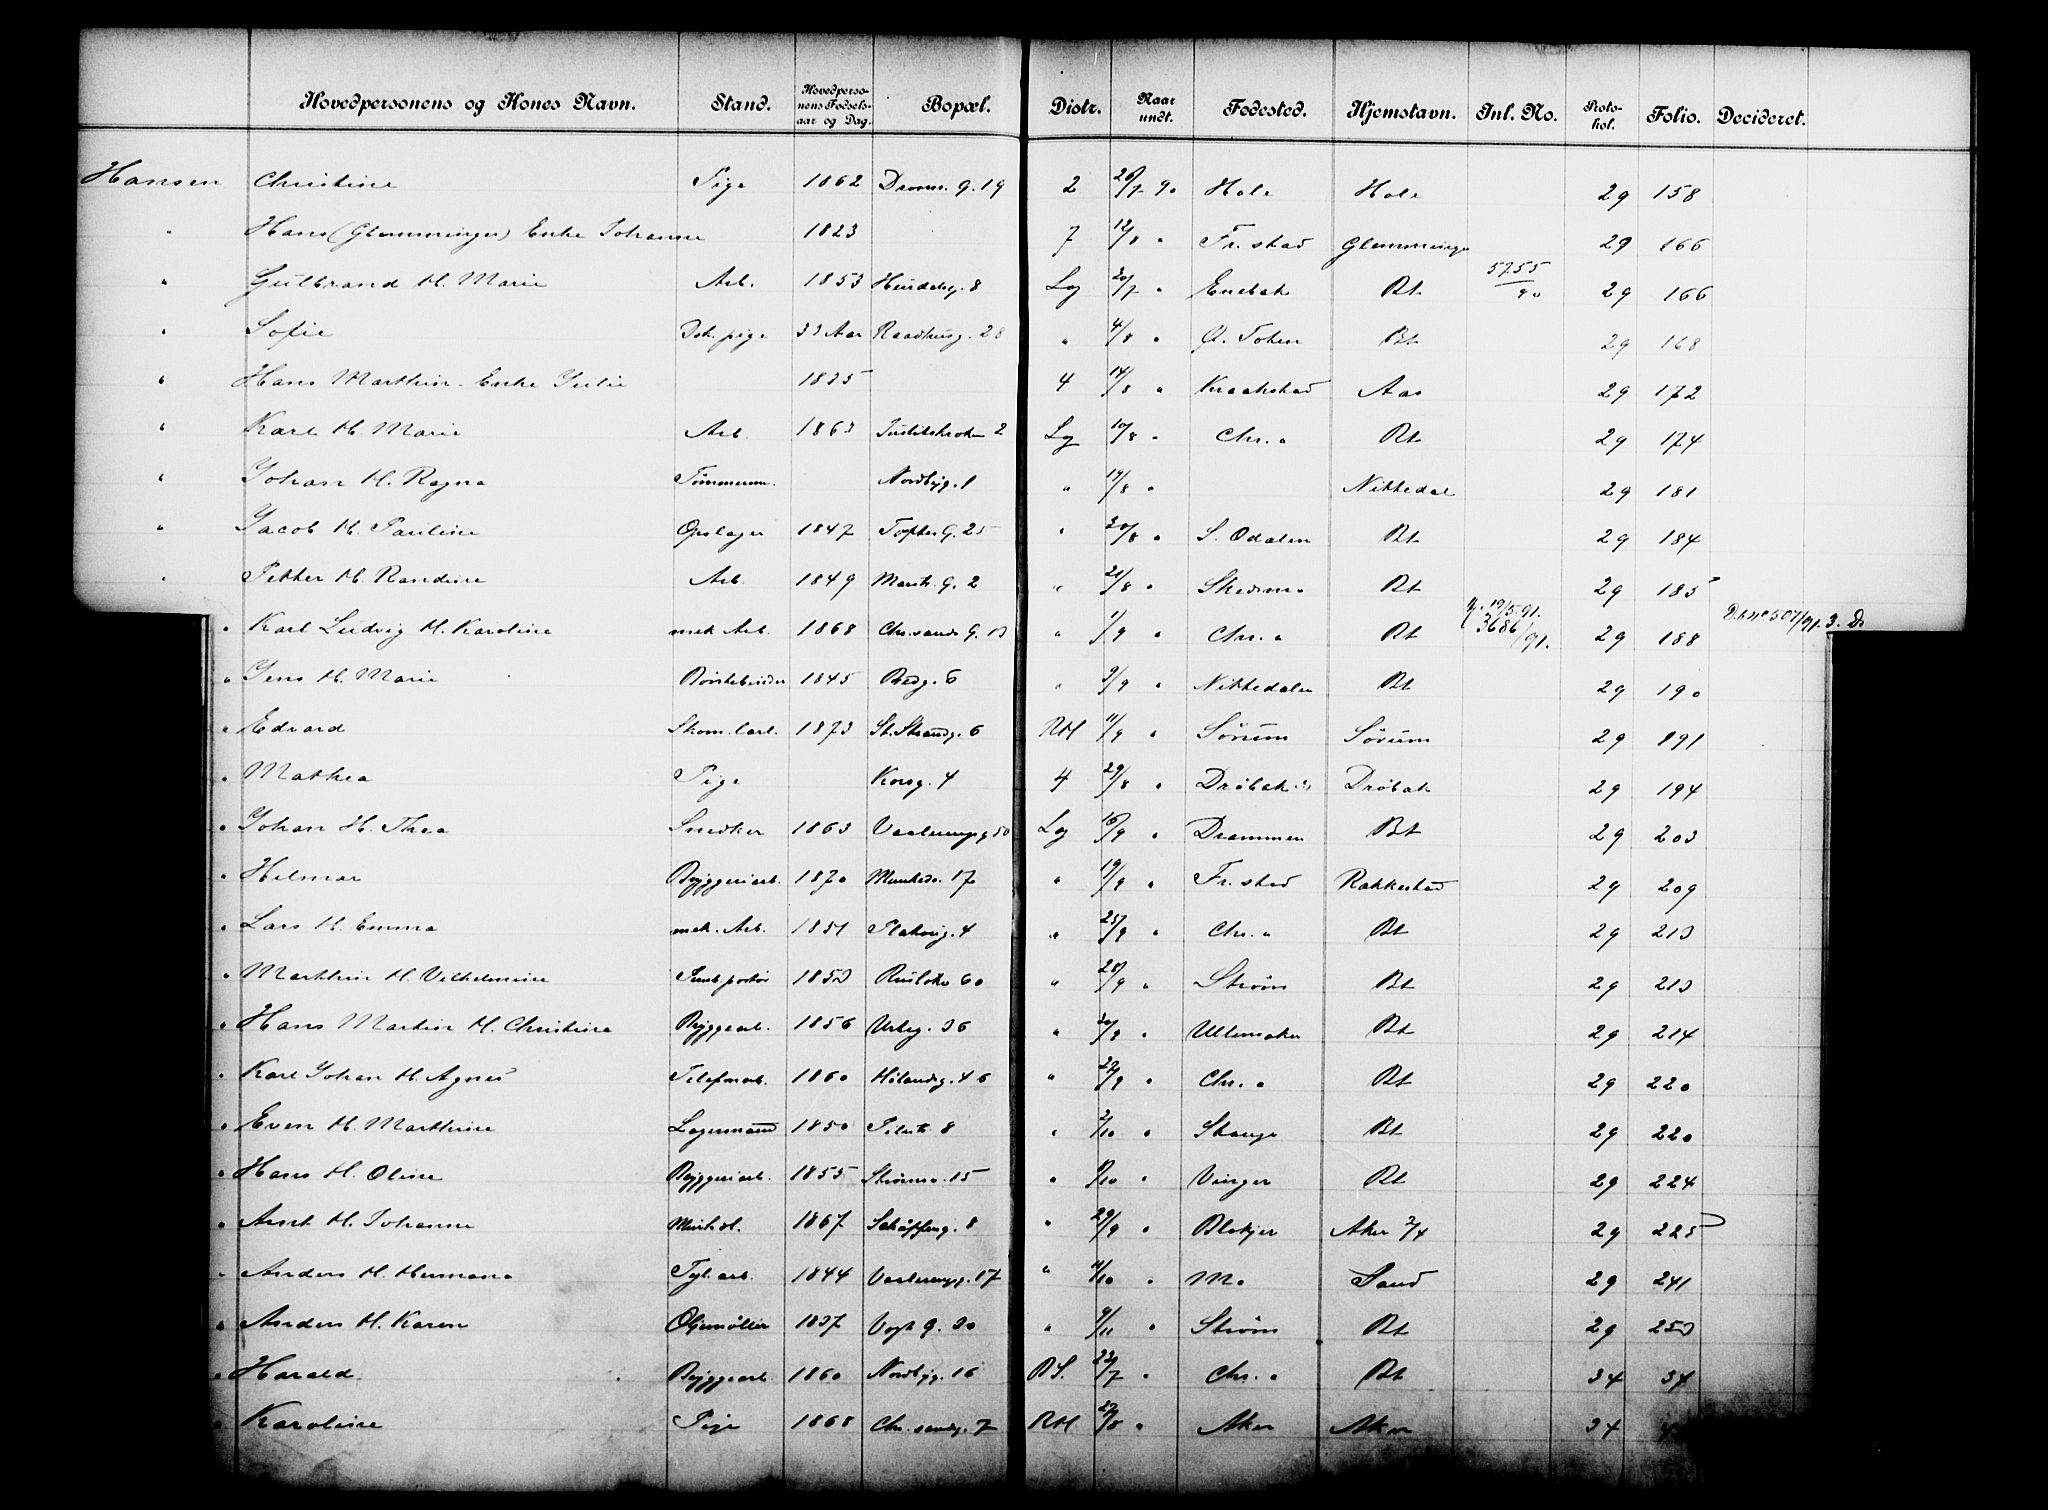 Hovedpersonens og Kones Navn. Stand. Hovedperso-nens Fødsels-aar og Dag. Bopæl. Distr. Naar undt. Fødested. Hjemstavn. Inl. No. Proto-kol. Folio. Decideret.
Hansen Christine Pige 1862 Dronn. G. 19 2 26/7 90 Hole Hole 29 158
" Hans (Glemminge) Enke Johanne 1823 7 12/8 " Fr.stad Glemminge 29 166
" Gulbrand H. Marie Arb. 1853 8 Lg 20/7 " Enebak Bt 5755/90 29 166
" Sofie pige 33 Aar Raadhusg. 28 " 4/8 " Ø. Toten Bt 29 168
" Hans Marthin Enke Julie 1835 4 14/8 " Kraakstad Aas 29 172
" Karl H. Marie Arb. 1863 2 Lg 10/8 " Chr.a Bt 29 174
" Johan H. Ragna Tømmerm. Nordbyg. 1 " 19/8 " Nittedal 29 181
" Jacob H. Pauline Opslager 1847 Toftes G. 25 " 20/8 " S. Odalen Bt 29 184
" Petter H. Randine Arb. 1849 Mark. G. 2 " 21/8 " Skedsmo Bt 29 185
" Karl Ludvig H. Karoline mek Arb. 1868 Chr.sands G. 13 " 1/9 " Chr.a Bt 19/5 91. 3686/91. 29 188 507/91. 3. D.
" Jens H. Marie Børstebinder 1845 Bredg. 6 " 3/9 " Nittedalen Bt 29 190
" Edvard Skom.lærl. 1873 St. Strandg. 6 RH 11/9 " Sørum Sørum 29 191
" Mathea Pige Korsg. 4 4 29/8 " Drøbak Drøbak 29 194
" Johan H. Thea Snedker 1863 Vaalerengg 50 Lg 16/9 " Drammen Bt 29 203
" Hilmar Byggeriarb. 1870 Munkedv. 17 " 19/9 " Fr.stad Rakkestad 29 209
" Lars H. Emma mek. Arb. 1851 Platoug. 4 " 25/9 " Chr.a Bt 29 213
" Marthin H. Vilhelmine 1853 Rusløkv 60 " 25/9 " Strøm Bt 29 213
" Hans Martin H. Christine Byggearb. 1856 Urteg. 36 " 20/9 " Ullensaker Bt 29 214
" Karl Johan H. Agnes Telefonarb. 1860 46 " 22/9 " Chr.a Bt 29 220
" Even H. Marthine Lagermand 1850 8 " 2/10 " Stange Bt 29 220
" Hans H. Oline Byggeriarb. 1855 Strømsv. 15 " /10 " Vinger Bt 29 224
" Arnt H. Johanne 1867 Schüsslerg. 8 " 29/9 " Blakjer Aker 2/4 29 225
" Anders H. Hermana Tyl. arb. 1844 Vaalerengg. 17 " 11/10 " Mo Sand 29 241
" Anders H. Karen Oljemøller 1837 Vogts G. 30 " 4/11 " Strøm Bt 29 253
" Harald Byggearb 1860 Nordbyg. 16 BS. 23/7 " Chr.a Bt 34 37
" Karoline Pige 1868 Chr.sandsg. 7 RH /8 " Aker Aker 34